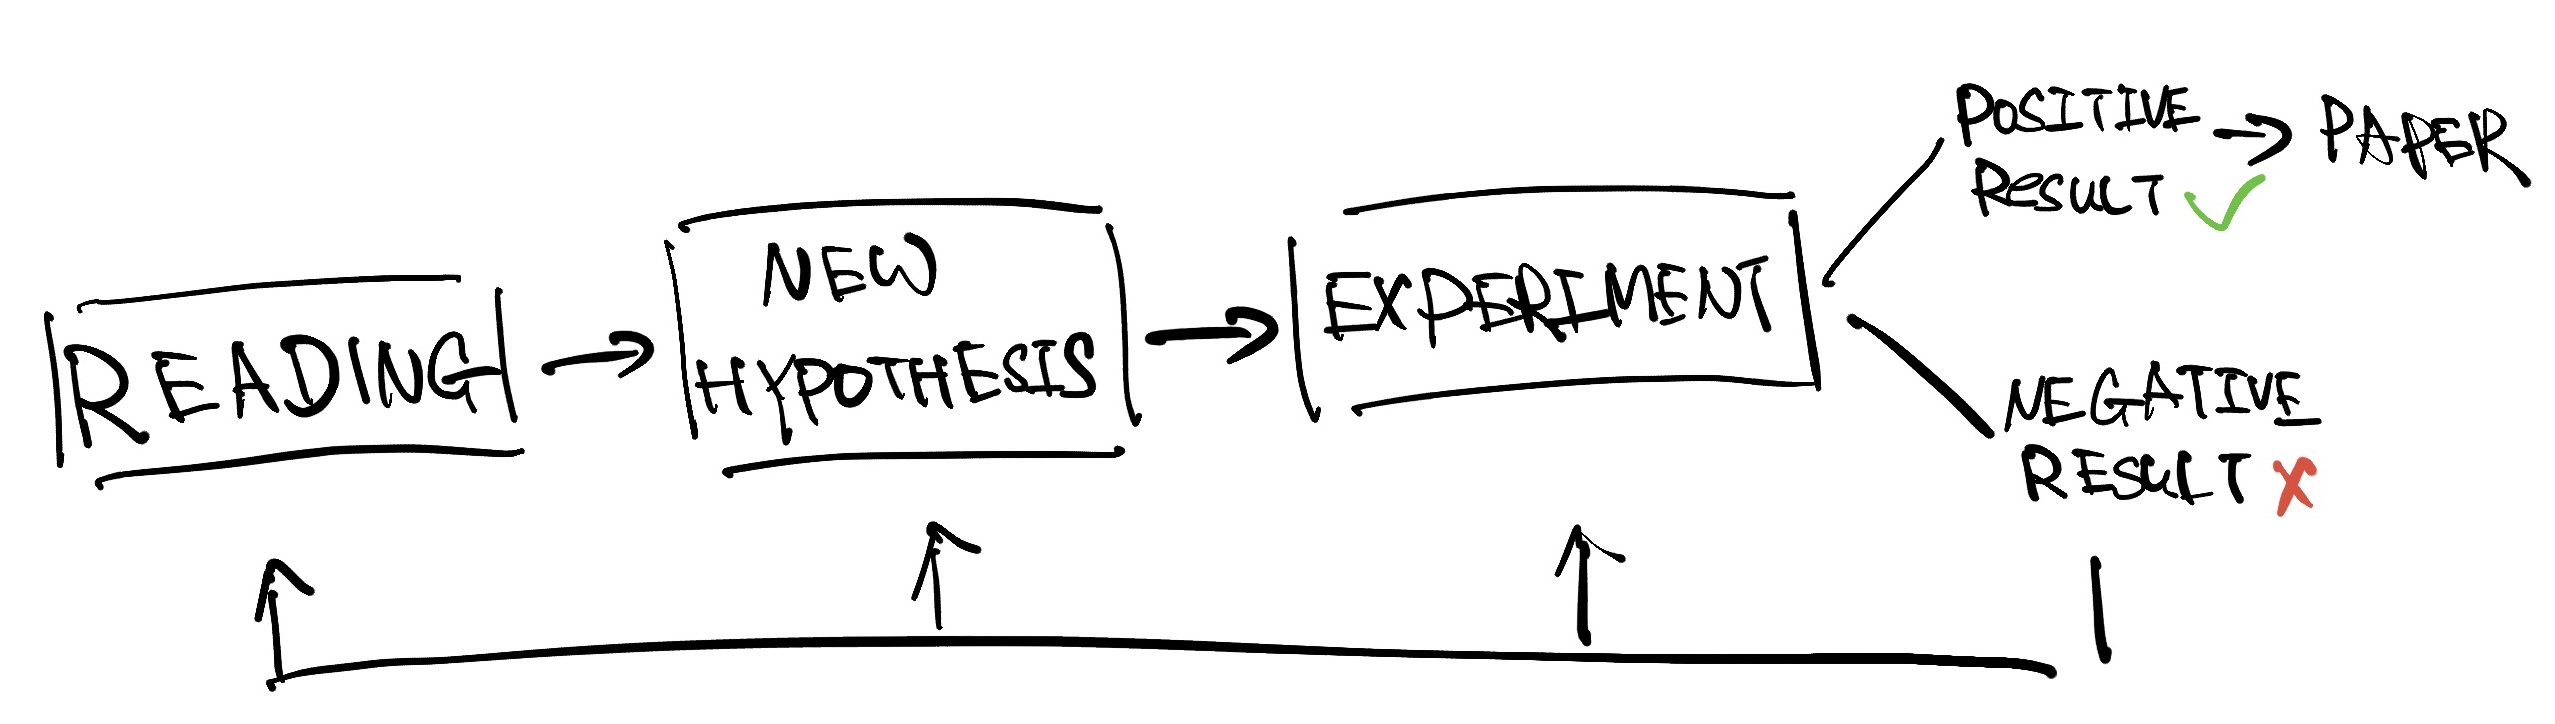 READING
NEW
HYPOTHESIS
EXPERIMENT
POSITIVE
RESULT
PAPER
NEGATIVE
RESULT